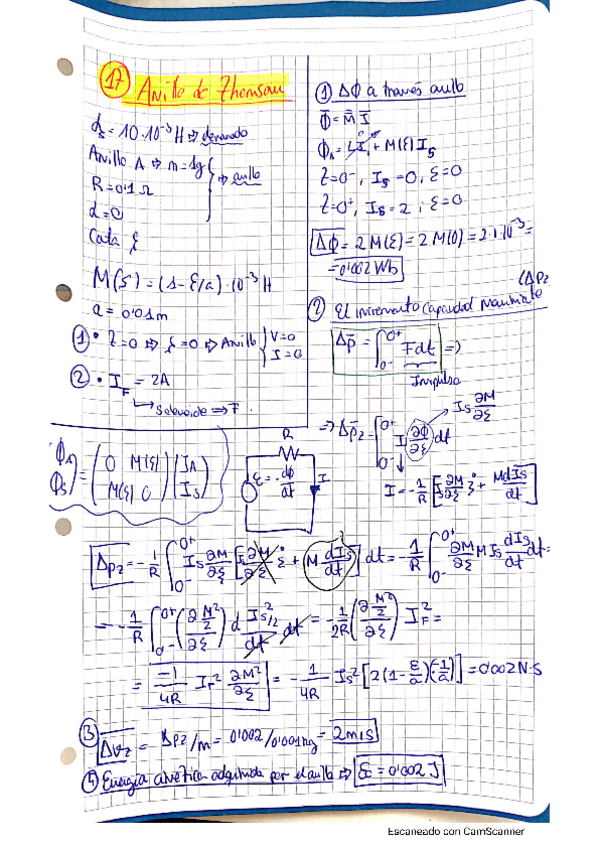 17 Anillo de Thomson
ds = 10·10⁻³ H ⇒ devanado
Anillo A ⇒ m = 1g
R = 0'1 Ω
⇒ anillo
d = 0
Cota ξ
M(ξ) = (1 - ξ/a)·10⁻³ H
a = 0'01m
① • t=0 ⇒ ξ=0 ⇒ Anillo { V=0 I=0
② • I_F = 2A
↳ Solenoide ⇒ F
(ϕ_A ϕ_S) = (0 M(ξ) M(ξ) 0)(I_A I_S)
① ΔΦ a través anillo
Φ̄ = M̄ Ī
ϕ_A = L I₁ + M(ξ) I_S
t=0⁻, I_S = 0, ξ=0
t=0⁺, I_S = 2, ξ=0
Δϕ = 2 M(ξ) = 2 M(0) = 2·1·10⁻³ =
= 0'002 Wb
(Δp_z
② El incremento Capacidad
Δp̄ = ∫₀₋⁰⁺ F dt ⇒
Impulso
⇒ Δp̄_z = ∫₀₋⁰⁺ I ∂ϕ/∂ξ dt
I_S ∂M/∂ξ
I = -1/R [I_S ∂M/∂ξ ξ̇ + M dI_S/dt]
R
ε = -dϕ/dt
I
Δp_z = -1/R ∫₀₋⁰⁺ I_S ∂M/∂ξ [I_S ∂M/∂ξ ξ̇ + M dI_S/dt] dt = -1/R ∫₀₋⁰⁺ ∂M/∂ξ M I_S dI_S/dt dt =
= -1/R ∫₀₋⁰⁺ (∂ M²/2 / ∂ξ) d I_S²/2 / dt dt = -1/2R (∂ M²/2 / ∂ξ) I_F² =
= -1/4R I_F² ∂M²/∂ξ = -1/4R I_S² [2(1 - ξ/a)(-1/a)] = 0'002 N·S
③ Δv_z = Δp_z/m = 0'002/0'001kg = 2m/s
④ Energía cinética adquirida por el anillo ⇒ Ec = 0'002 J
Escaneado con CamScanner